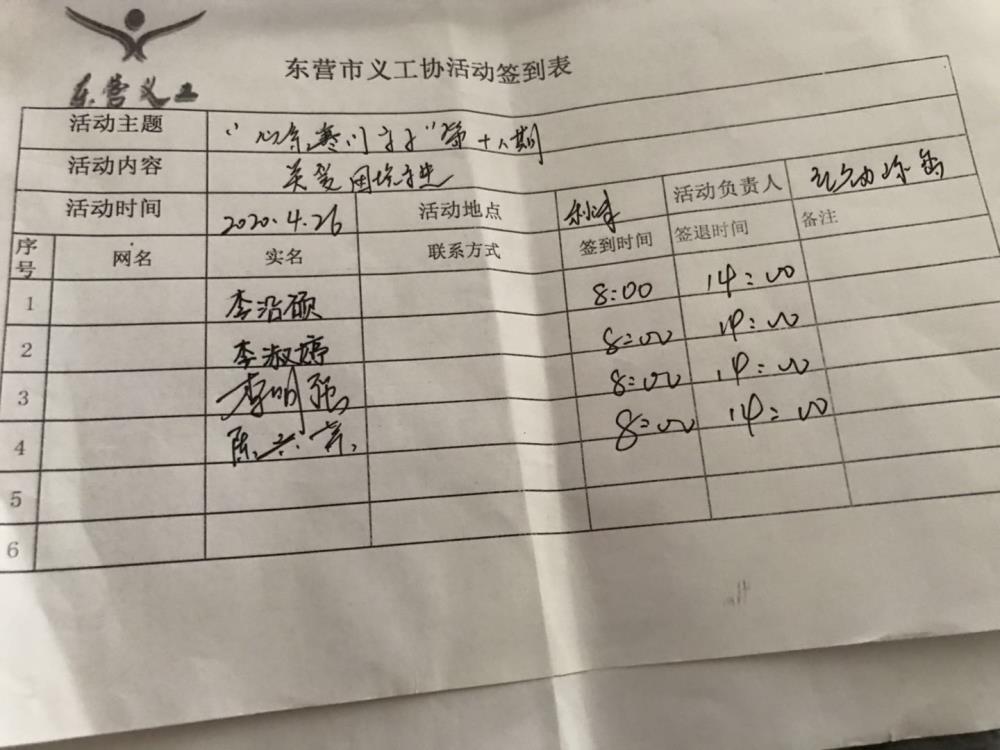 东营义工
东营市义工协活动签到表
活动主题 “心系寒门学子”第十八期
活动内容
活动时间 2020.4.26 活动地点 利津 活动负责人
序号 网名 实名 联系方式 签到时间 签退时间 备注
1 李沿硕 8:00 14:00
2 李淑婷 8:00 14:00
3 李明强 8:00 14:00
4 陈 8:00 14:00
5
6